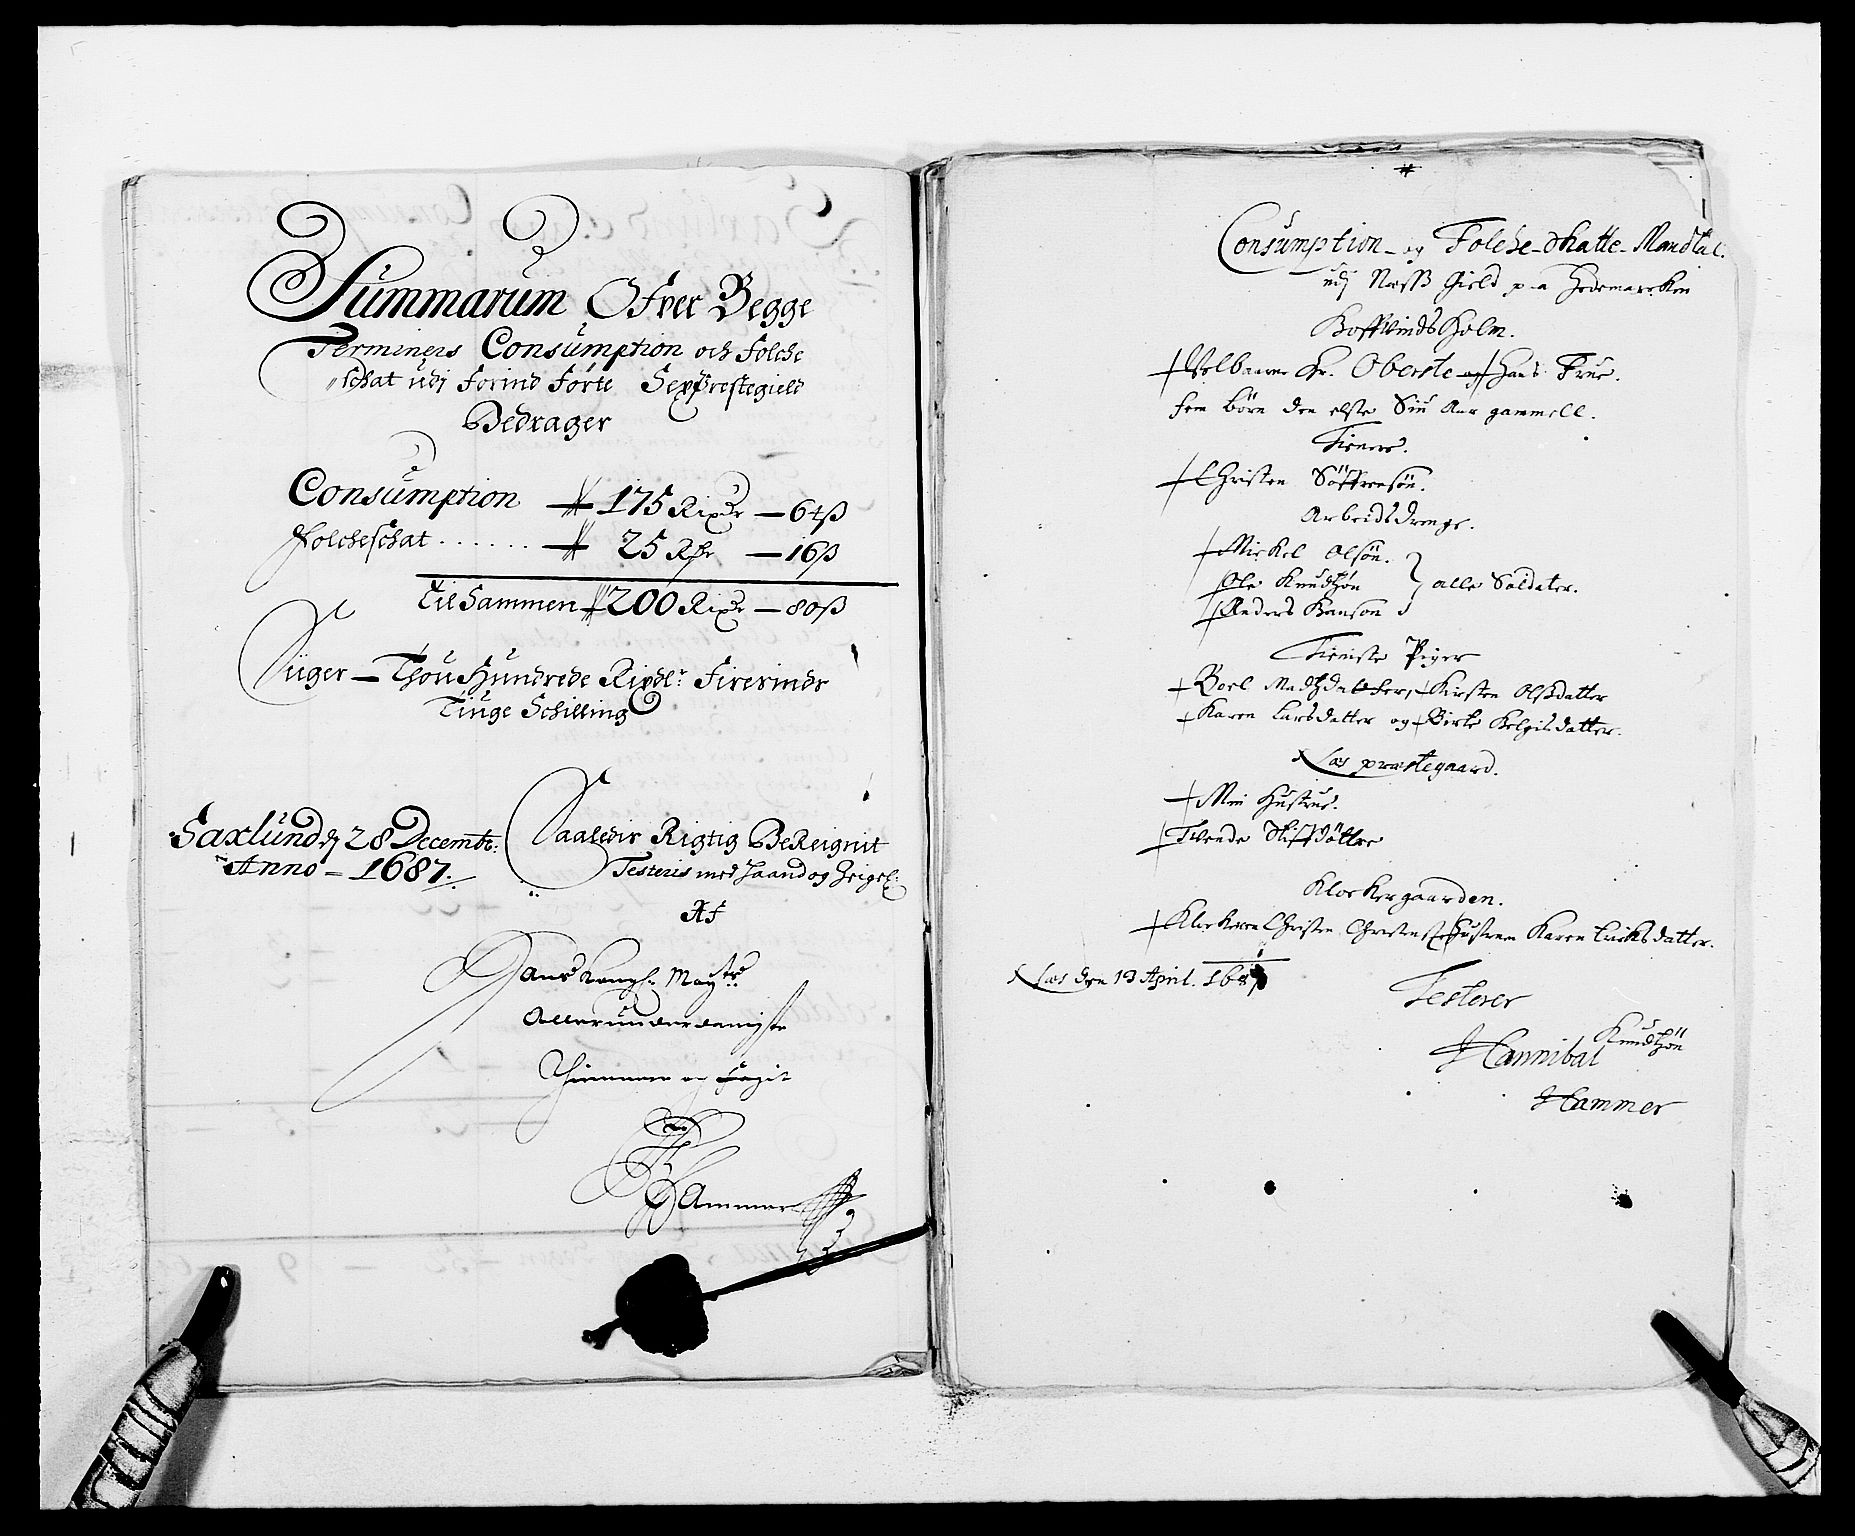 Summarum Ofver Begge
Terminers Consumption och Folche
schat udj forind førte Sex Prestegield
Bedrager
Consumption 175 Rixdr — 64 ß
Folcheschat . . . . . . 25 Rdr — 16 ß
Til Sammen 200 Rixdr — 80 ß
Siiger — Thou Hundrede Rixdlr Firesinds
Tiuge Schilling
Saxlund d 28 Decembr:
Anno — 1687.
Saaledis Rigtig Bereignit
Testeris med Haand og Zeigel:
Af
Hans Kongl: Mayts
Allerunderdanigste
Thienner og Fogit
Hammer
Consumption og Folche-Skatte-Mandtal
udj Næss Gield paa Hedemarcken
Hoffwindsholm.
Velbaarne Hr. Oberste og hans Frue.
fem børn den elste Siu Aar gammell.
Tienere.
Christen Søffrensøn.
Arbeidsdrenge.
Mickel Olsøn.
Ole Knudtzøn } alle Soldater.
Anders Hansøn
Tieniste Piger
Boel Madtzdatter, Kirsten Olssdatter
Karen Larsdatter og Birte Helgisdatter.
Næs præstegaard.
Min Hustrue.
Tvende Stiffdøttre
Klockergaarden.
Klockeren Christen Hustruen Karen Eriksdatter.
Næs den 13 April. 1687
Testerer
Hannibal Knudtzøn
Hammer